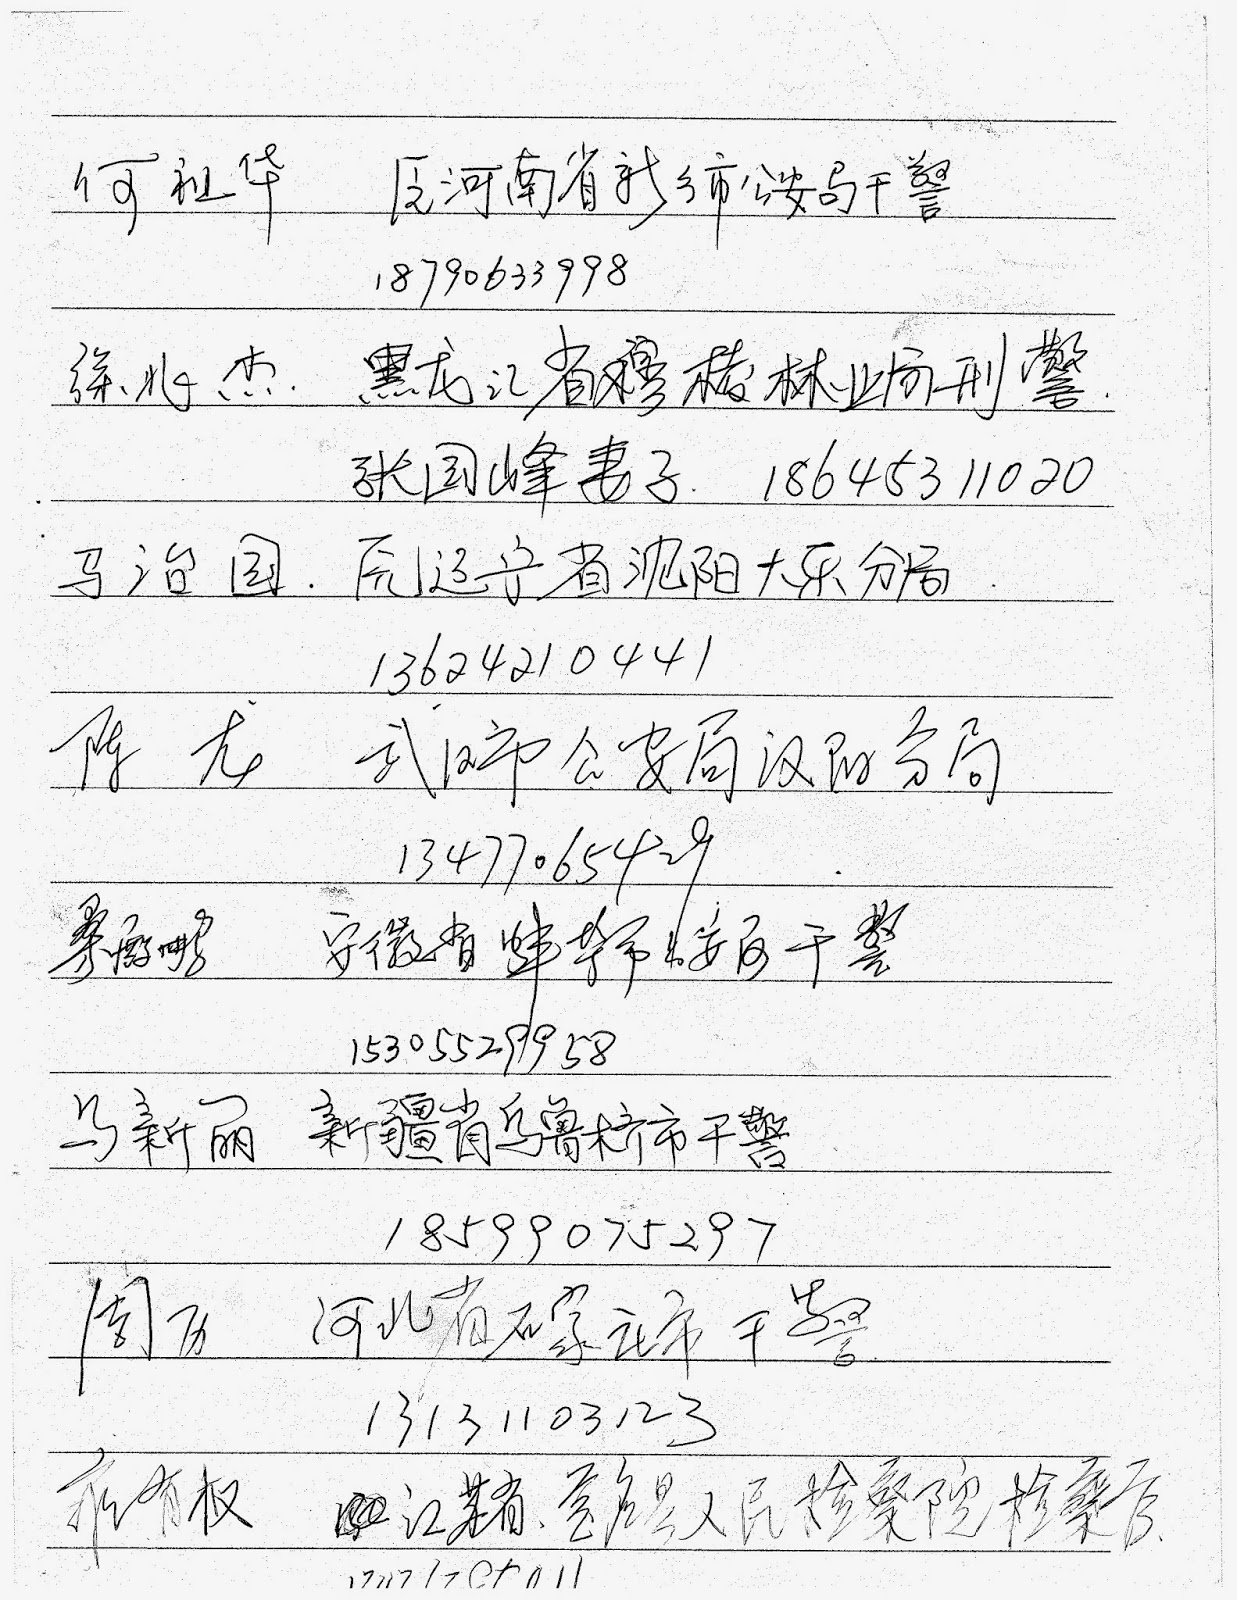 何祖华 原河南省新乡市公安局干警
18790633998
徐兆杰. 黑龙江省穆棱林业局刑警.
张国峰妻子. 18645311020
马治国. 原辽宁省沈阳大东分局.
13624210441
陈龙 武汉市公安局汉阳分局
13477065429
安徽省蚌埠市公安局干警
15305529958
马新丽 新疆省乌鲁木齐市干警
18599075297
周 河北省石家庄市干警
13131103123
有权 江苏省 县人民检察院检察官.